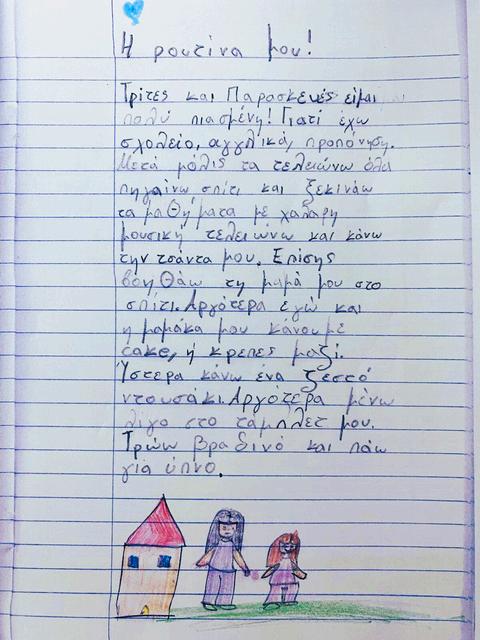 Η ρουτίνα μου!
Τρίτες και Παρασκευές είμαι
πολύ πιασμένη! Γιατί έχω
σχολείο, αγγλικά, προπόνηση.
Μετά μόλις τα τελειώνω όλα
πηγαίνω σπίτι και ξεκινάω
τα μαθήματα με χαλαρη
μουσική τελειώνω και κάνω
την τσάντα μου. Επίσης
βοηθάω τη μαμά μου στο
σπίτι. Αργότερα εγώ και
η μαμάκα μου κάνουμε
cake, ή κρεπες μαζί.
Ύστερα κάνω ένα ζεστό
ντουσάκι. Αργότερα μένω
λίγο στο τάμπλετ μου.
Τρώω βραδινό και πάω
για ύπνο.